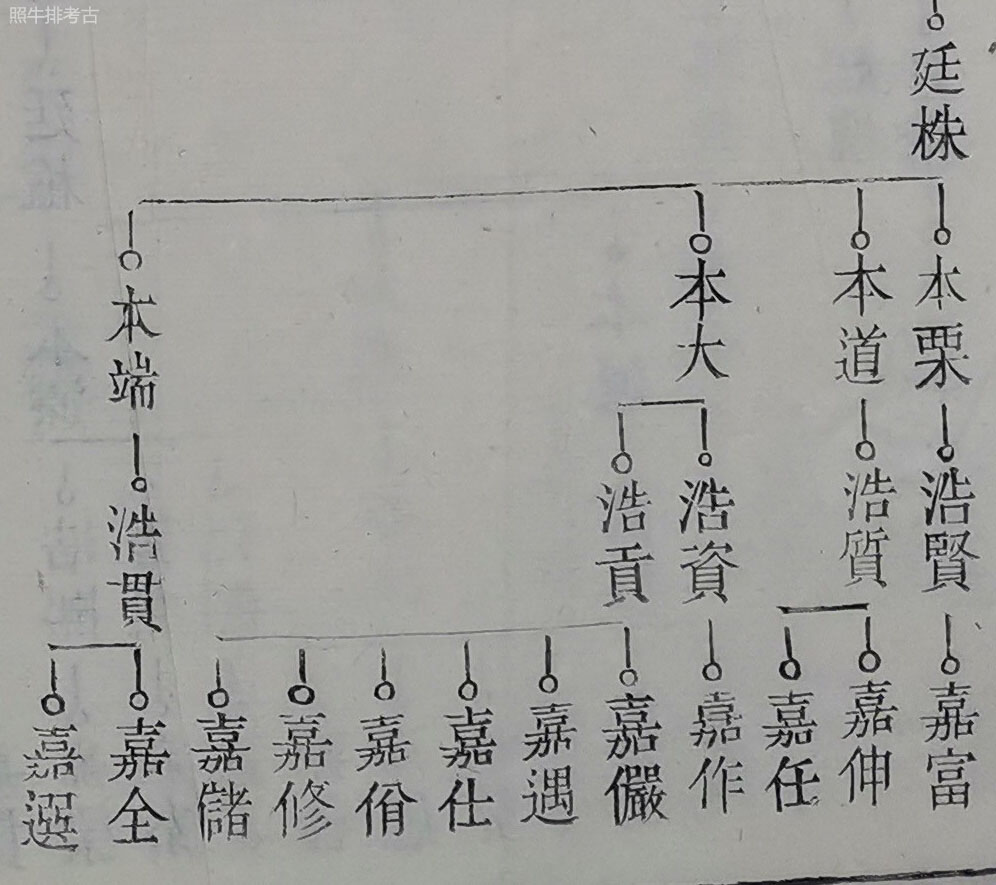 照牛排考古
廷株
本栗
本道
本大
本端
浩賢
浩質
浩資
浩貢
浩貫
嘉富
嘉伸
嘉任
嘉作
嘉儼
嘉遇
嘉仕
嘉佾
嘉修
嘉儲
嘉全
嘉選